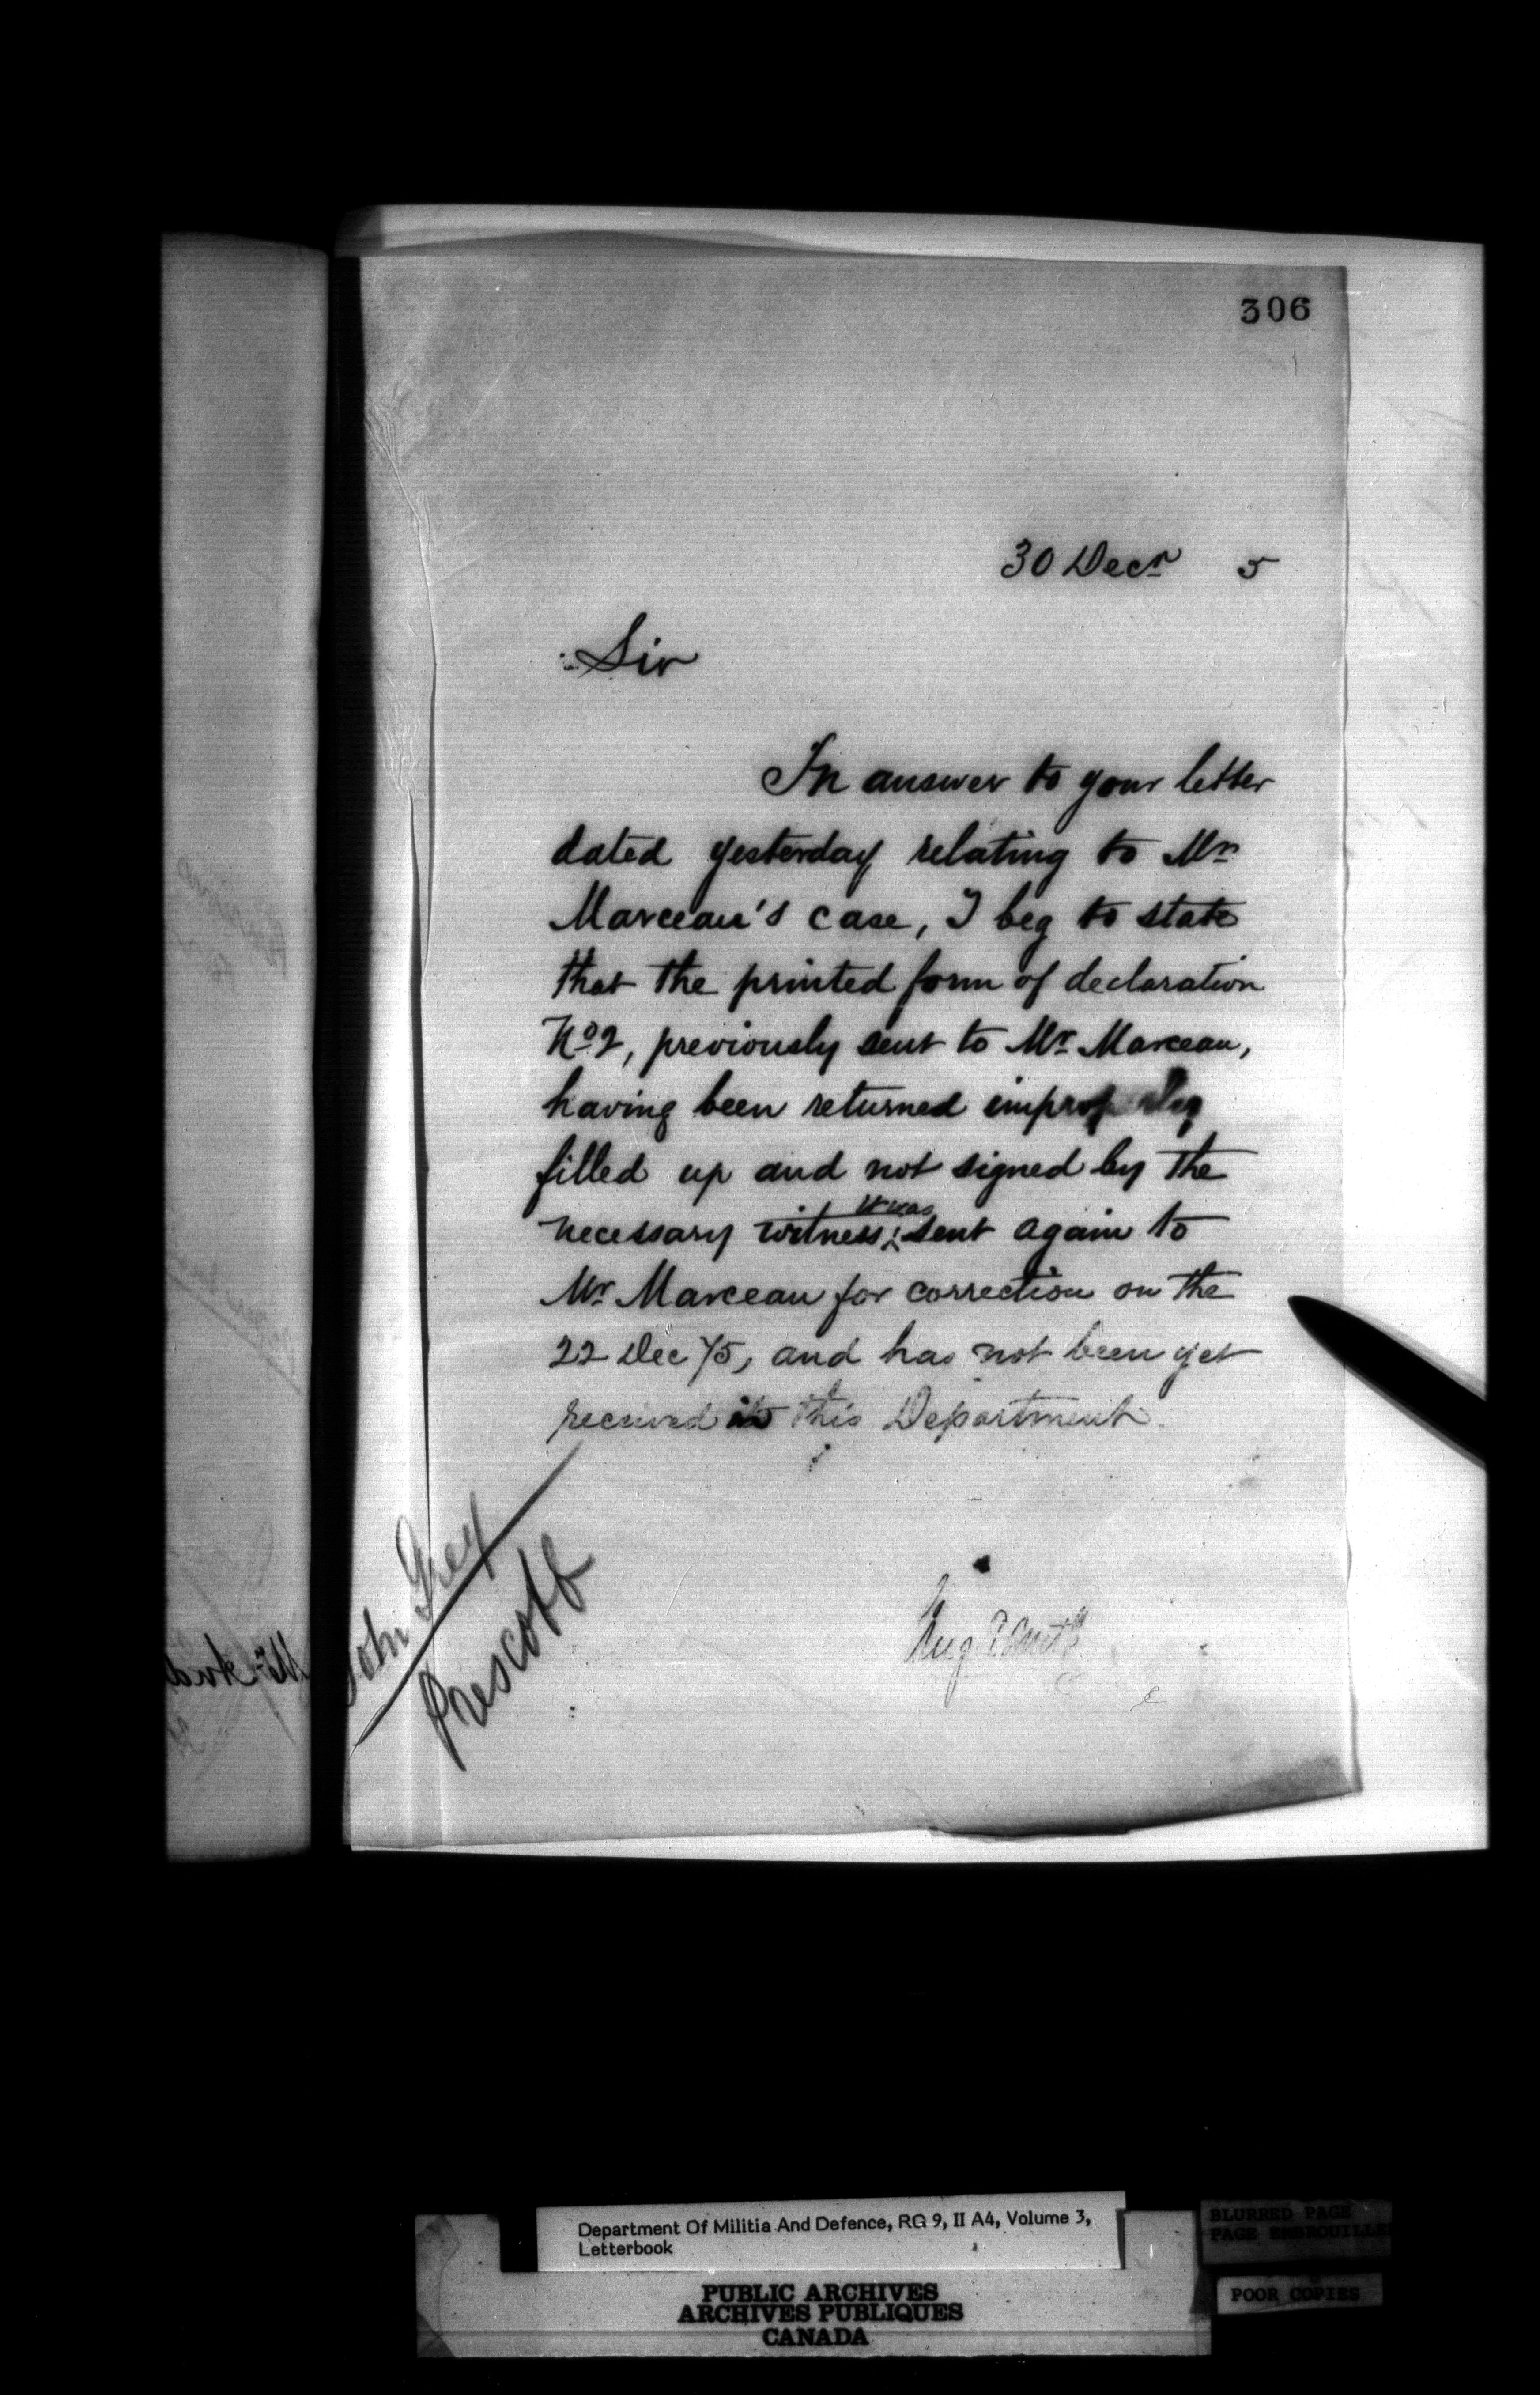 306
30 Decr 5
Sir
In answer to your letter
dated yesterday relating to Mr
Marceau's case, I beg to state
that the printed form of declaration
No 2, previously sent to Mr Marceau,
having been returned improperly
filled up and not signed by the
necessary witness; it was sent again to
Mr Marceau for correction on the
22 Dec 75, and has not been yet
received in this Department.
John Grey
Prescott
Department Of Militia And Defence, RG 9, II A4, Volume 3,
Letterbook
PUBLIC ARCHIVES
ARCHIVES PUBLIQUES
CANADA
BLURRED PAGE
PAGE EMBROUILLE
POOR COPIES